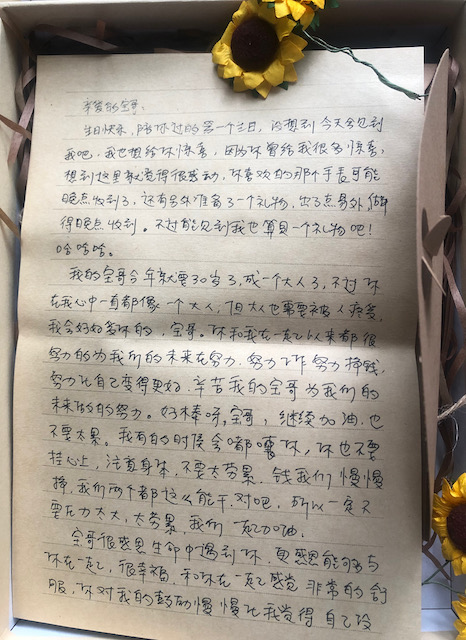 亲爱的宝哥:
生日快乐,陪你过的第一个生日,没想到今天会见到
我吧,我也想给你惊喜,因为你曾给我很多惊喜,
想到这里就觉得很感动,你喜欢的那个手表可能
晚点收到了,还有另外准备了一个礼物,出了点意外,你
得晚点收到。不过能见到我也算是一个礼物吧!
哈哈哈。
我的宝哥今年就要30岁了,成一个大人了,不过你
在我心中一直都像一个大人,但大人也需要被人疼爱,
我会好好爱你的,宝哥。你和我在一起以来都很
努力的为我们的未来在努力,努力工作努力挣钱,
努力让自己变得更好,辛苦我的宝哥为我们的
未来做的努力。好棒呀,宝哥,继续加油,也
不要太累。我有的时候会嘟囔你,你也不要
挂心上,注意身体,不要太劳累,钱我们慢慢
挣,我们两个都这么能干,对吧,所以一定不
要压力太大,太劳累,我们一起加油。
宝哥很感恩生命中遇到你,更感恩能够与
你在一起,很幸福,和你在一起感觉非常的舒
服,你对我的鼓励慢慢让我觉得自己没